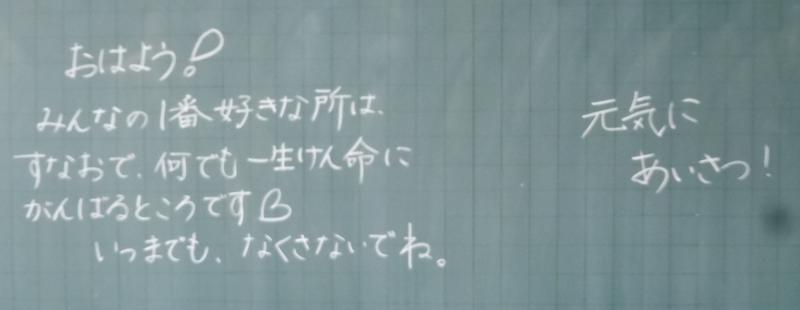 おはよう!
みんなの1番好きな所は、
すなおで、何でも一生けん命に
がんばるところです♡
いつまでも、なくさないでね。
元気に
あいさつ!